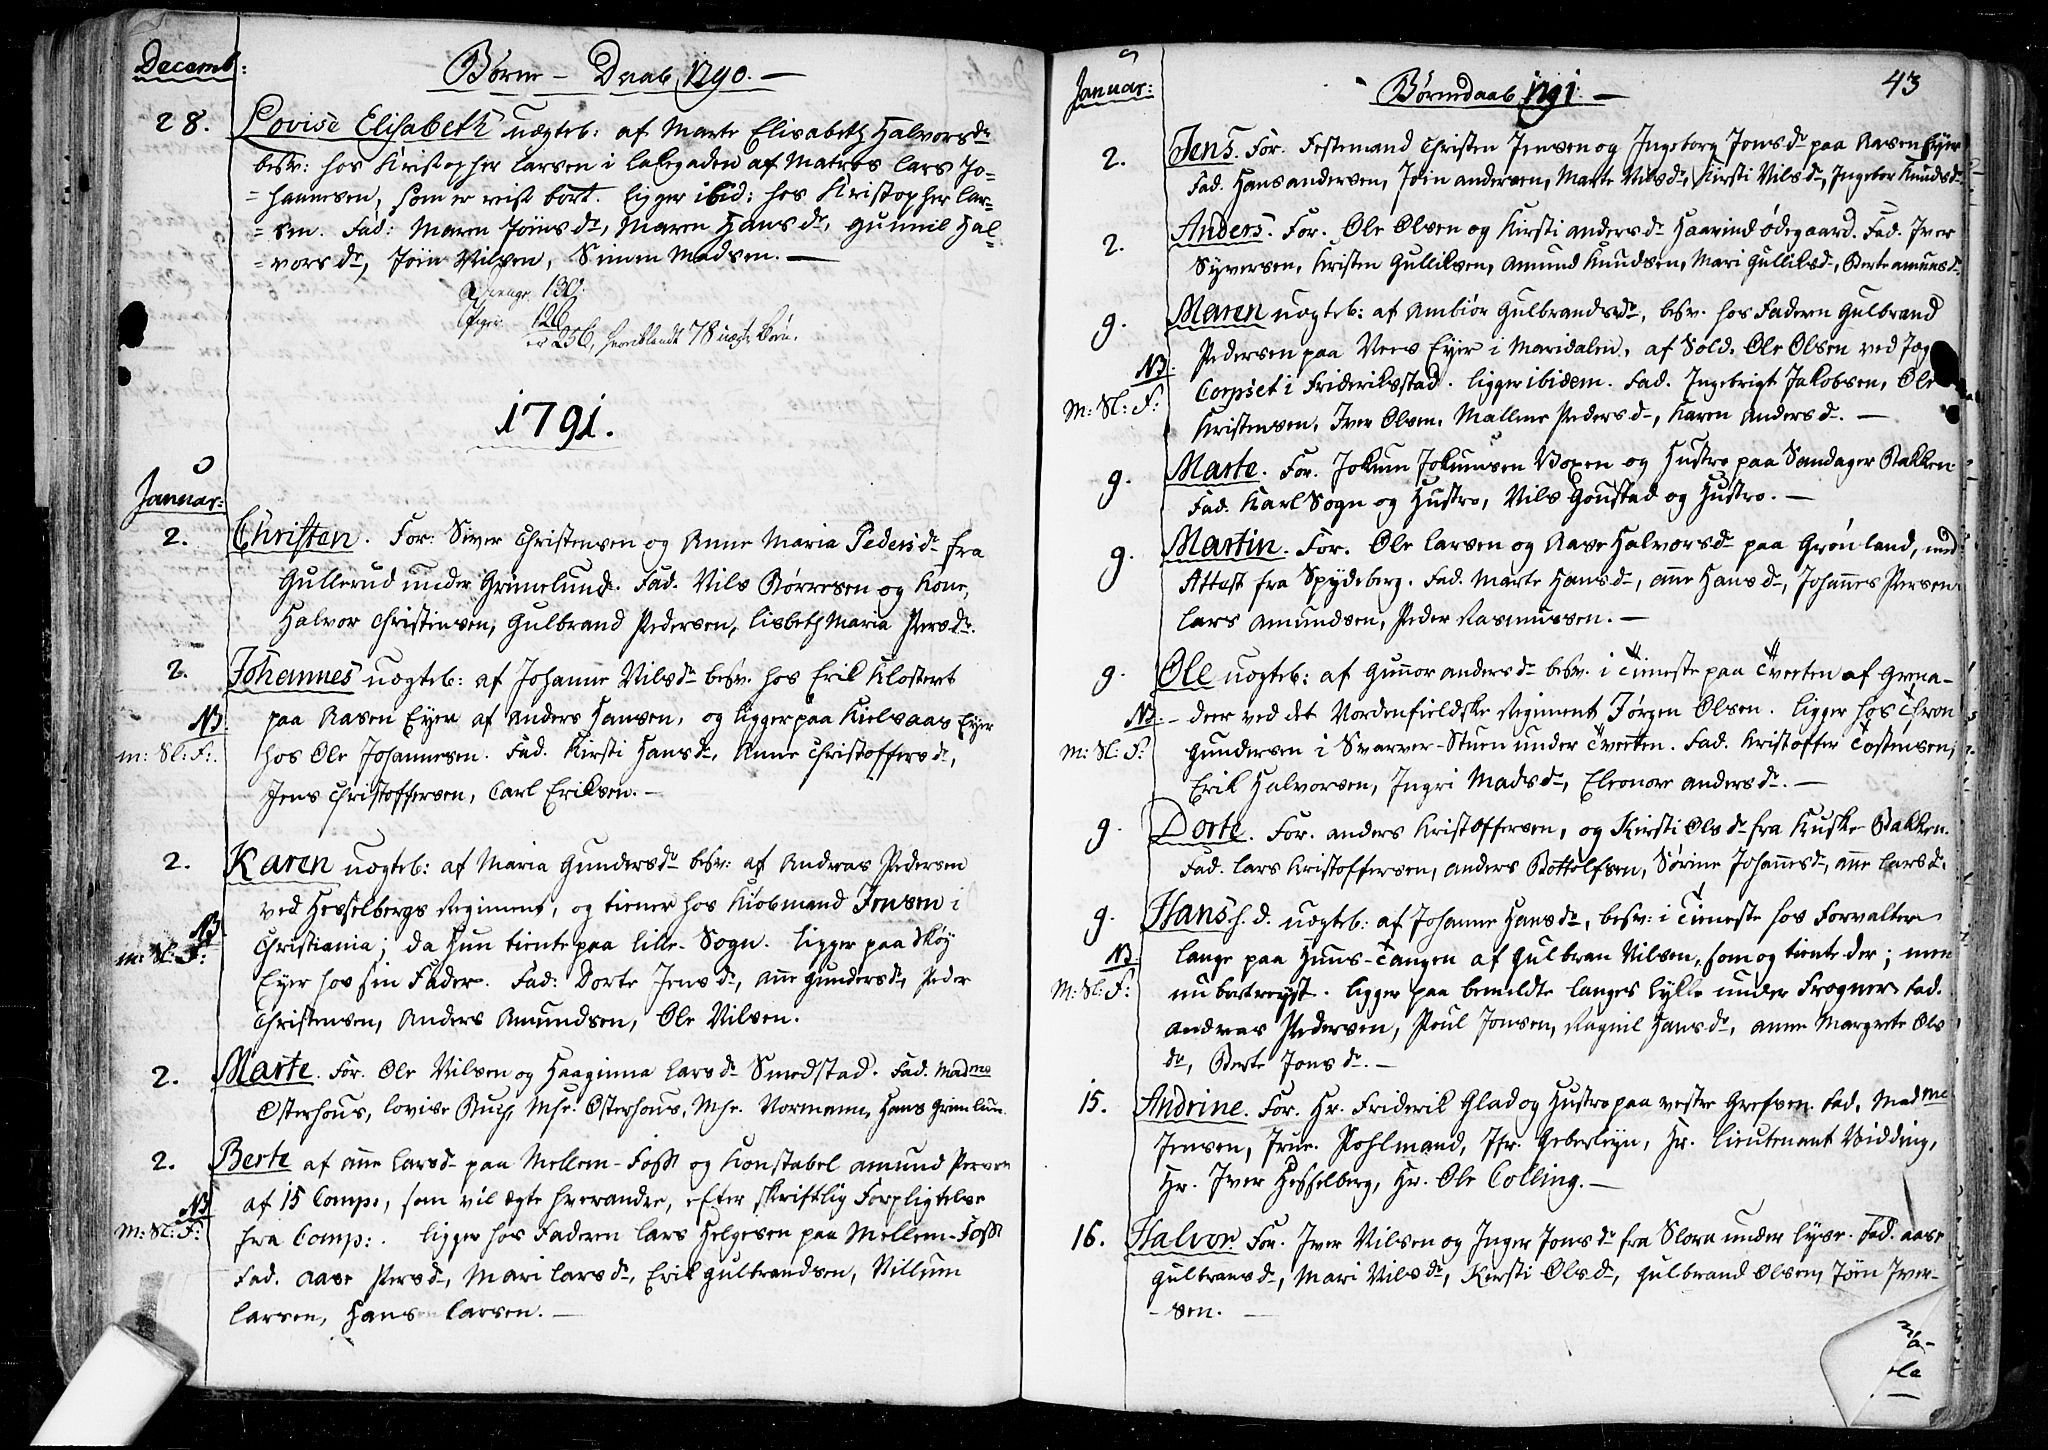 Decemb:
Børne - Daab 1790. —
28. Lovise Elisabeth uægteb: af Marte Elisabeth Halvorsdr
besv: hos Kristopher Larsen i Lakegaden af Matros Lars Jo=
=hannesen, som er reist bort. Ligger ibid: hos Kristopher Lar=
=sen. Fad: Maren Jönsdr, Maren Hansdr, Gunnil Hal=
=vorsdr, Jöin Nilsen, Simen Madsen. —
Drenge 130.
Piger 126
er 256, hvoriblandt 78 uægte Børn.
1791.
Januar:
2. Christen. For: Siver Christensen og Anne Maria Pedersdr fra
Gullerud under Grimelund. Fad. Nils Börresen og Kone,
Halvor Christensen, Gulbrand Pedersen, Lisbeth Maria Persdr.
2. Johannes uægteb: af Johanne Nilsdr besv. hos Erik Klostert
NB. paa Aasen Eyer af Anders Hansen, og ligger paa Kielsaas Eyer
m: Sl: F: hos Ole Johannesen. Fad. Kirsti Hansdr, Anne Christoffersdr,
Jens Christoffersen, Carl Eriksen. —
2. Karen uægteb: af Maria Gundersdr besv: af Andreas Pedersen
ved Hesselbergs Regiment, og tiener hos Kiöbmand Jensen i
NB Christiania; da Hun tiente paa Lille-Sogn. Ligger paa Sköy
m: Sl: F: Eyer hos sin Fader. Fad: Dorte Jensdr, Anne Gundersdr, Peder
Christensen, Anders Amundsen, Ole Nilsen.
2. Marte. For. Ole Nilsen og Haaginna Larsdr Smedstad. Fad. Madme
Osterhous, Lovise Buch, Mhr: Osterhous, Mhr. Normann, Hans Grimelun.
2. Berte af Anne Larsdr paa Mellem-Foss og Konstabel Amund Persen
NB af 15 Comp., som vil ægte hverandre, efter skriftlig Forpligtelse
M: Sl: F: fra Comp: . Ligger hos Faderen Lars Helgesen paa Mellem-Foss
Fad. Aase Persdr, Mari Larsdr, Erik Gulbrandsen, Villum
Larsen, Hans Larsen. —
Januar:
Børnedaab 1791. —
43
2. Jens. For. Festemand Christen Jensen og Ingeborg Jonsdr paa Aasen Eyer
Fad. Hans Andersen, Jöin Andersen, Marte Nilsdr, Kirsti Nilsdr, Ingebor Knudsdr
2. Anders. For. Ole Olsen og Kirsti Andersdr Haavind Ödegaard. Fad. Iver
Syversen, Kristen Gulliksen, Amund Knudsen, Mari Gulliksdr, Berte Amundsdr.
9. Maren uægteb: af Ambiör Gulbrandsdr, besv. hos Faderen Gulbrand
NB. Pedersen paa Nees Eyer i Maridalen, af Sold. Ole Olsen ved Jæg
M: Sl: F: Corpset i Frideriksstad. ligger ibidem. Fad. Ingebrigt Jakobsen, Ole
Kristensen, Iver Olsen, Mallene Pedersdr, Karen Andersdr. —
9. Marte. For. Jokum Jokumsen Voxen og Hustro paa Sandager Bakken
Fad. Karl Sogn og Hustro, Nils Goustad og Hustro. —
9. Martin. For. Ole Larsen og Aase Halvorsdr paa Grönland, med
Attest fra Spydeberg. Fad. Marte Hansdr, Anne Hansdr, Johannes Persen
Lars Amundsen, Peder Rasmussen. —
9. Ole uægteb: af Gunnor Andersdr besv. i Tieneste paa Tveeten af Grena-
NB: -deer ved det Nordenfieldske Regiment Jörgen Olsen. ligger hos Thron
M: Sl: F: Gundersen i Svarver-Stuen under Tveeten. Fad. Kristoffer Tostensen,
Erik Halvorsen, Ingri Madsdr, Eleonore Andersdr. —
9. Dorte. For. Anders Kristoffersen, og Kirsti Olsdr fra Kuske Bakken.
Fad. Lars Kristoffersen, Anders Bottolfsen, Sörine Johannesdr, Anne Larsdr.
9. Hans h. d. uægteb: af Johanne Hansdr, besv: i Tieneste hos Forvalter
NB. Lange paa Huus-Tangen af Gulbran Nilsen, som og tiente der; men
M: Sl: F: nu bortreyst. ligger paa bemeldte Langes Lykke under Frogner. Fad.
Andreas Pedersen, Poul Jonsen, Ragnil Hansdr, Anne Margrete Ols
dr, Berte Jonsdr. —
15. Andrine. For. Hr. Friderik Glad og Hustro paa vestre Grefsen. Fad. Madme
Jensen, Frue Pohlmand, Jfr. Geberleyn, Hr. Lieutenant Widding,
Hr. Iver Hesselberg, Hr. Ole Colling. —
16. Halvor. For. Iver Nilsen og Inger Jonsdr fra Slora under Lyse. Fad. Aase
Gulbransdr, Mari Nilsdr, Kersti Olsdr, Gulbrand Olsen, Jöen Iver-
-sen. —